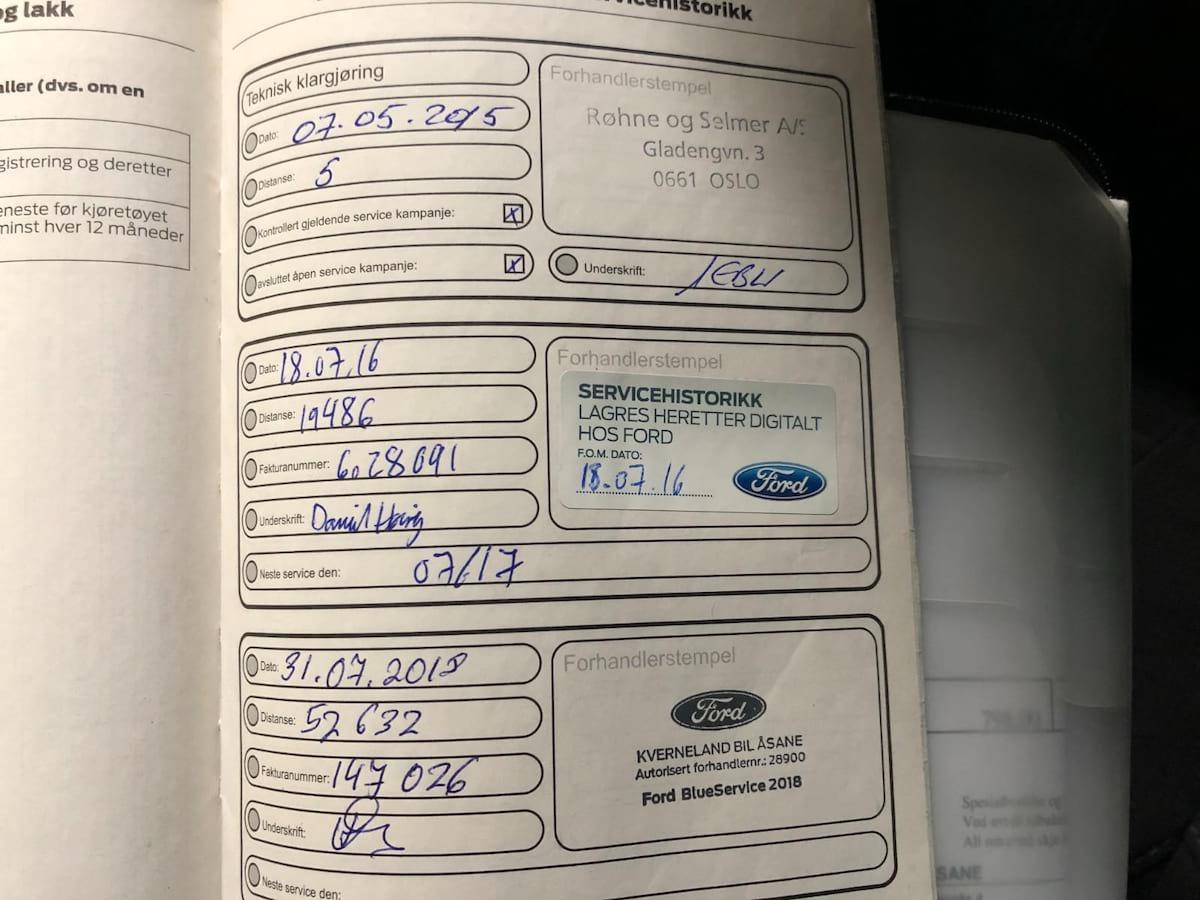 og lakk
aller (dvs. om en
gistrering og deretter
eneste før kjøretøyet
minst hver 12 måneder
servicehistorikk
Teknisk klargjøring
Dato: 07.05.2015
Distanse: 5
Kontrollert gjeldende service kampanje: X
avsluttet åpen service kampanje: X
Forhandlerstempel
Røhne og Selmer A/S
Gladengvn. 3
0661 OSLO
Underskrift:
Dato: 18.07.16
Distanse: 19486
Fakturanummer: 6028091
Underskrift: Daniel
Neste service den: 07/17
Forhandlerstempel
SERVICEHISTORIKK
LAGRES HERETTER DIGITALT
HOS FORD
F.O.M. DATO:
18.07.16
Ford
Dato: 31.07.2018
Distanse: 52 632
Fakturanummer: 147 026
Underskrift:
Neste service den:
Forhandlerstempel
Ford
KVERNELAND BIL ÅSANE
Autorisert forhandlernr.: 28900
Ford BlueService 2018
SANE